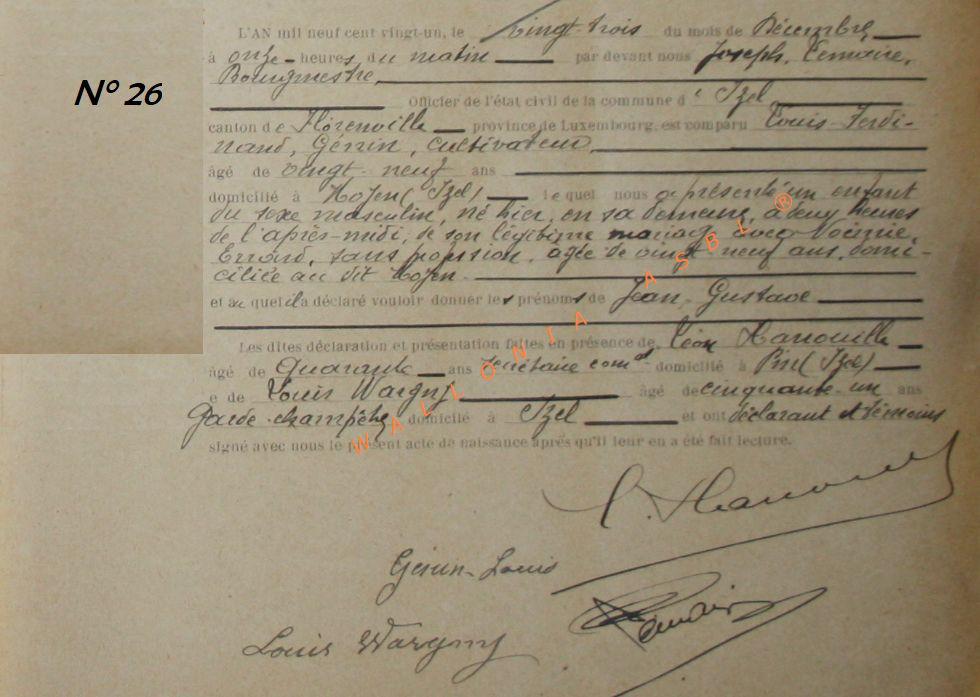 N° 26
L'AN mil neuf cent vingt-un, le vingt-trois du mois de Décembre
à onze heures du matin par devant nous Joseph, Lemaire,
Bourgmestre,
Officier de l'état civil de la commune d' Izel
canton de Florenville province de Luxembourg, est comparu Louis-Ferdi-
nand, Gérin, cultivateur,
âgé de vingt-neuf ans
domicilié à Moyen (Izel) lequel nous a présenté un enfant
du sexe masculin, né hier, en sa demeure, à deux heures
de l'après-midi, de son légitime mariage avec Noémie,
sans profession, âgée de vingt-neuf ans, domi-
ciliée au dit Moyen.
et auquel il a déclaré vouloir donner les prénoms de Jean-Gustave
Les dites déclaration et présentation faites en présence de Léon Hanouille
âgé de Quarante ans secrétaire comal domicilié à Pin (Izel)
e de Louis Wargny âgé de cinquante un ans
Garde-champêtre domicilié à Izel et ont déclarant et témoins
signé avec nous le présent acte de naissance après qu'il leur en a été fait lecture.
WALLONIA ASBL ®
Gérin-Louis
Lemaire
Louis Wargny